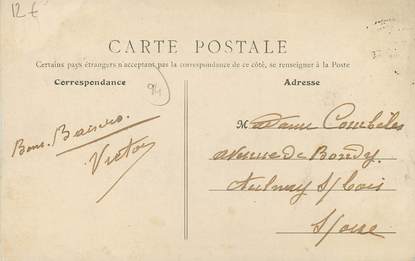 12 €
CARTE POSTALE
Certains pays étrangers n'acceptant pas la correspondance de ce côté, se renseigner à la Poste
Correspondance
Adresse
94
Bons Baisers
Victor
Madame Combèles
avenue de Bondy
Aulnay S/bois
S/oise